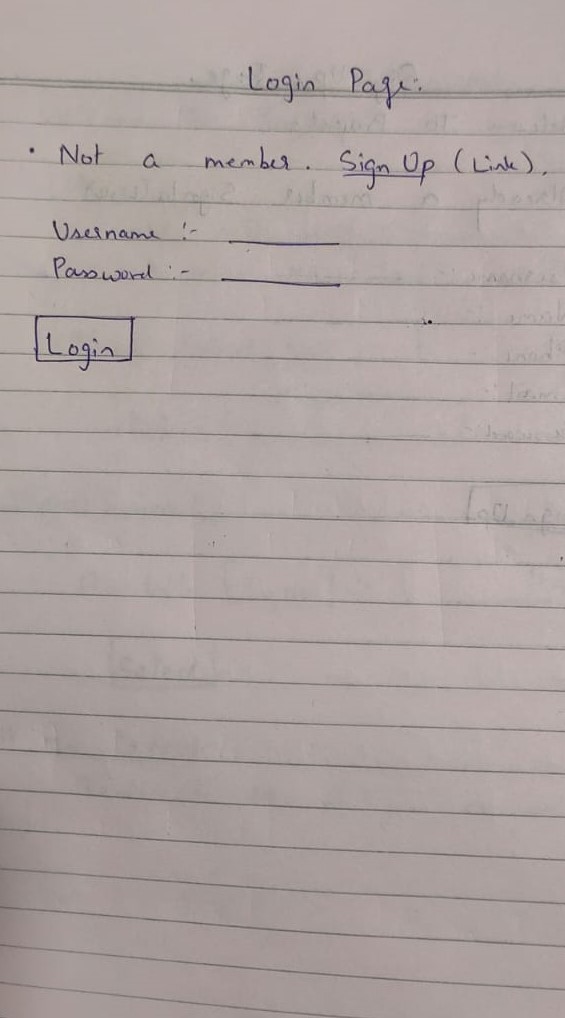 Login Page:
• Not a member. Sign Up (Link).
Username :-
Password :-
Login